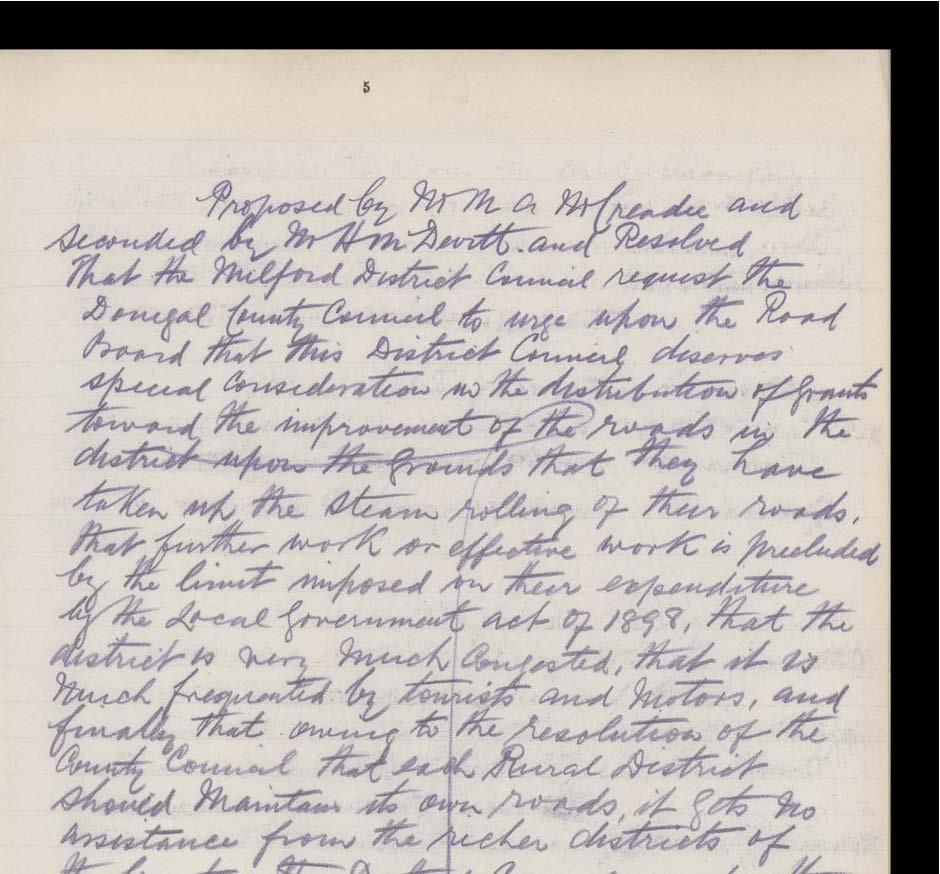 5
Proposed by Mr M A McCreadie and
Seconded by Mr H McDevitt. and Resolved
That the Milford District Council request the
Donegal County Council to urge upon the Road
Board that this District Council deserves
special consideration in the distribution of Grants
toward the improvement of the roads in the
district upon the Grounds that they have
taken up the Steam rolling of their roads.
that further work or effective work is precluded
by the limit imposed on their expenditure
by the Local Government act of 1898, that the
district is very much Congested, that it is
Much frequented by tourists and Motors, and
finally that owing to the resolution of the
County Council that each Rural District
should Maintain its own roads, it gets no
assistance from the richer districts of